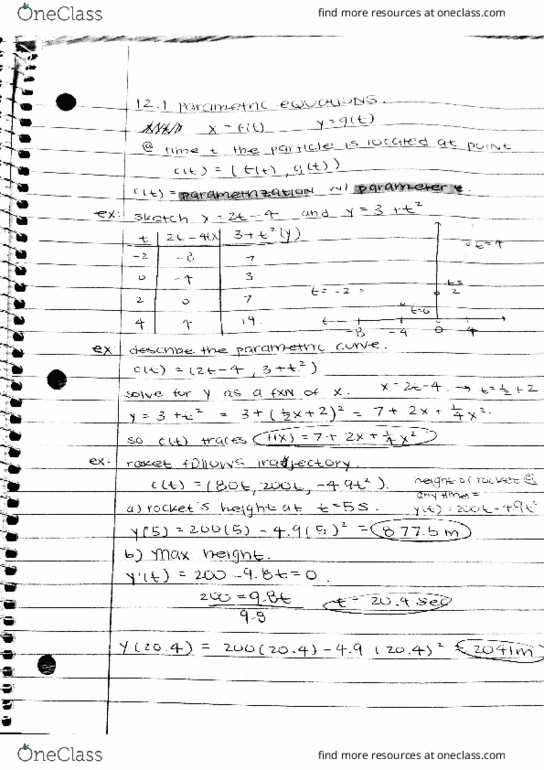 OneClass find more resources at oneclass.com
12.1 parametric equations.
x = f(t) y = g(t)
@ time t the particle is located at point
c(t) = (f(t), g(t))
c(t) = parametrization w/ parameter t.
ex: sketch x = 2t - 4 and y = 3 + t²
t 2t - 4(x) 3 + t²(y)
-2 -8 7
0 -4 3
2 0 7
4 4 19
t = 4
t = -2
t = 2
t = 0
-8 -4 0 4
ex describe the parametric curve.
c(t) = (2t - 4, 3 + t²)
solve for y as a fxn of x. x = 2t - 4. → t = ½ + 2
y = 3 + t² = 3 + (½x + 2)² = 7 + 2x + ¼x².
so c(t) traces f(x) = 7 + 2x + ¼x²
ex: rocket follows trajectory.
c(t) = (80t, 200t, -4.9t²). height of rocket @
any time =
y(t) = 200t - 4.9t²
a) rocket's height at t = 5s.
y(5) = 200(5) - 4.9(5)² = 877.5m
b) max height.
y'(t) = 200 - 9.8t = 0.
200 = 9.8t t = 20.4 sec
9.8
y(20.4) = 200(20.4) - 4.9(20.4)² = 2041m
OneClass find more resources at oneclass.com